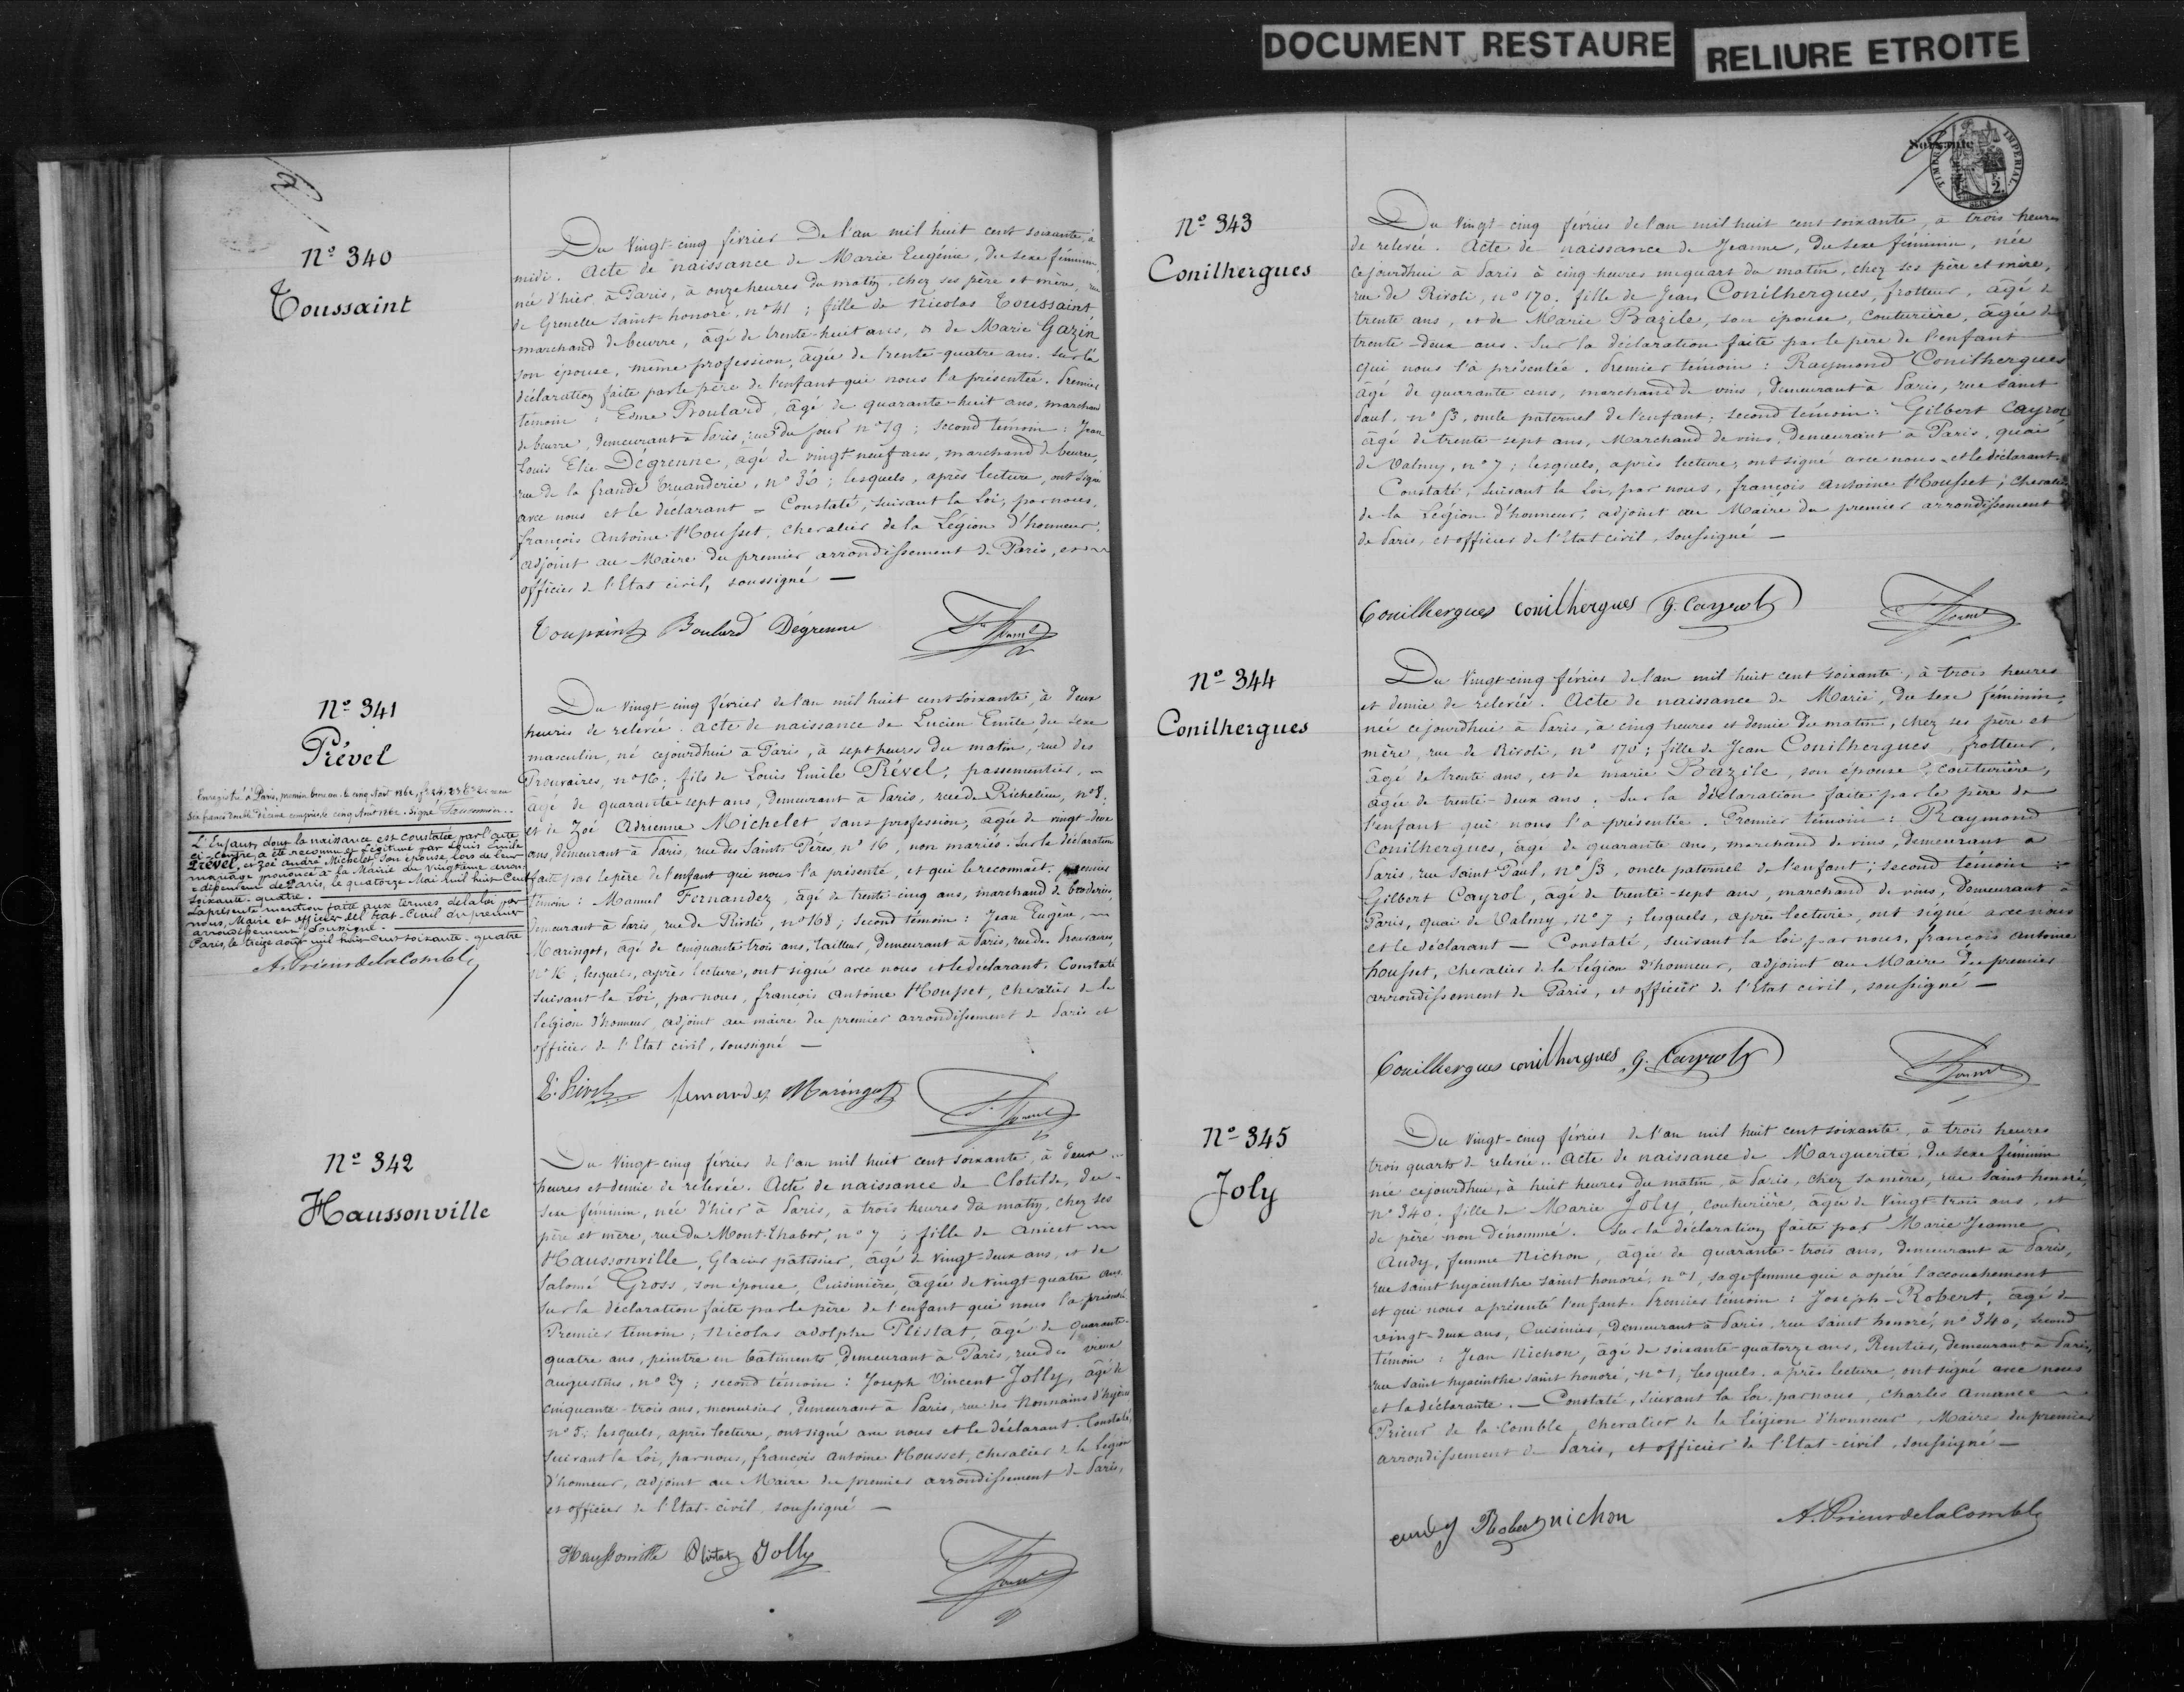 DOCUMENT RESTAURE
RELIURE ETROITE
Nº 340
Toussaint
Du vingt-cinq février de l'an mil huit cent soixante, à
midi. Acte de naissance de Marie Eugénie, du sexe féminin,
née d'hier à Paris, à onze heures du matin, chez ses père et mère, rue
de Grenelle Saint-honoré, nº 41 ; fille de Nicolas Toussaint
marchand de beurre, âgé de trente-huit ans, & de Marie Gazin
son épouse, même profession, âgée de trente-quatre ans. Sur la
déclaration faite par le père de l'enfant qui nous l'a présentée. Premier
témoin : Edme Boulard, âgé de quarante-huit ans, marchand
de beurre, demeurant à Paris, rue du Jour nº 19 ; second témoin : Jean
Louis Elie Dégrenne, âgé de vingt-neuf ans, marchand de beurre,
rue de la grande Truanderie, nº 36 ; lesquels, après lecture, ont signé
avec nous et le déclarant = Constaté, suivant la Loi, par nous,
françois Antoine Housset, chevalier de la Légion d'honneur,
adjoint au Maire du premier arrondissement de Paris, et
officier de l'Etat civil, soussigné —
Toussaint Boulard Dégrenne
Nº 341
Prével
Enregistré à Paris, premier bureau, le cinq Août 1862,
six francs double décime compris, le cinq Août 1862. Signé
L'Enfant, dont la naissance est constatée par l'acte
ci-contre, a été reconnu et légitimé par Louis Emile
Prével, et Zoé André Michelet, son épouse, lors de leur
mariage prononcé à la Mairie du vingtième arron-
-dissement de Paris, le quatorze Mai mil huit-Cent
soixante-quatre.
La présente mention faite aux termes de la loi par
nous, Maire et officier del'Etat-Civil du premier
arrondissement, Soussigné.
Paris, le treize août mil huit-cent soixante-quatre
A. Prieur de la Comble
Du vingt-cinq février de l'an mil huit cent soixante, à deux
heures de relevée. Acte de naissance de Lucien Emile, du sexe
masculin, né cejourdhui à Paris, à sept heures du matin, rue des
Prouvaires, nº 16 ; fils de Louis Emile Prével, passementier,
âgé de quarante sept ans, demeurant à Paris, rue de Richelieu, nº 8 ;
et de Zoé Adrienne Michelet, sans profession, âgée de vingt-deux
ans, demeurant à Paris, rue des Saints Pères, nº 16, non mariés. Sur la déclaration
faite par le père de l'enfant qui nous l'a présenté, et qui le reconnait. premier
témoin : Manuel Fernandez, âgé de trente-cinq ans, marchand de broderies,
demeurant à Paris, rue de Rivoli, nº 168 ; second témoin : Jean Eugène,
Maringot, âgé de cinquante-trois ans, tailleur, demeurant à Paris, rue des Prouvaires,
nº 16 ; lesquels, après lecture, ont signé avec nous et le déclarant. Constaté
suivant la Loi, par nous, françois Antoine Housset, chevalier de la
légion d'honneur, adjoint au maire du premier arrondissement de Paris et
officier de l'Etat civil, soussigné —
E. Prével fernandez Maringot
Nº 342
Haussonville
Du vingt-cinq février de l'an mil huit cent soixante, à deux
heures et demie de relevée. Acte de naissance de Clotilde, du
sexe féminin, née d'hier à Paris, à trois heures du matin, chez ses
père et mère, rue du Mont-Thabor, nº 7 ; fille de Anicet
Haussonville, Glacier pâtissier, âgé de vingt-deux ans, et de
Salomé Gross, son épouse, Cuisinière, âgée de vingt-quatre ans
Sur la déclaration faite par le père de l'enfant qui nous l'a présenté
Premier témoin ; Nicolas adolphe Plistat, âgé de quarante-
quatre ans, peintre en bâtiments, demeurant à Paris, rue des vieux
augustins, nº 27 ; second témoin : Joseph Vincent Jolly, âgé de
cinquante-trois ans, menuisier, demeurant à Paris, rue des Nonnains d'hyères
nº 5 ; lesquels, après lecture, ont signé avec nous et le déclarant. Constaté,
suivant la Loi, par nous, françois Antoine Housset, chevalier de la Légion
d'honneur, adjoint au Maire du premier arrondissement de Paris,
et officier de l'Etat-civil, soussigné —
Haussonville Plistat Jolly
TIMBRE IMPERIAL
Nº 343
Conilhergues
Du vingt-cinq février de l'an mil huit cent soixante, à trois heures
de relevée. Acte de naissance de Jeanne, du sexe féminin, née
cejourdhui à Paris à cinq heures un quart du matin, chez ses père et mère,
rue de Rivoli, nº 170. fille de Jean Conilhergues, frotteur, âgé de
trente ans, et de Marie Bazile, son épouse, couturière, âgée de
trente-deux ans. Sur la déclaration faite par le père de l'enfant
qui nous l'a présentée. Premier témoin : Raymond Conilhergues
âgé de quarante ans, marchand de vins, demeurant à Paris, rue Saint
Paul, nº 13, oncle paternel de l'enfant ; second témoin : Gilbert Cayrol
âgé de trente-sept ans, Marchand de vins, demeurant à Paris, quai
de Valmy, nº 7 ; lesquels, après lecture, ont signé avec nous et le déclarant
Constaté, suivant la Loi, par nous, françois Antoine Housset ; chevalier
de la Légion d'honneur, adjoint au Maire du premier arrondissement
de Paris, et officier de l'Etat civil, soussigné —
Conilhergues conilhergues G. Cayrol
Nº 344
Conilhergues
Du Vingt-cinq février de l'an mil huit cent soixante, à trois heures
et demie de relevée. Acte de naissance de Marie, du sexe féminin,
née cejourdhui à Paris, à cinq heures et demie du matin, chez ses père et
mère, rue de Rivoli, nº 170 ; fille de Jean Conilhergues, frotteur,
âgé de trente ans, et de marie Bazile, son épouse, couturière,
âgée de trente-deux ans. Sur la déclaration faite par le père de
l'enfant qui nous l'a présentée. Premier témoin : Raymond
Conilhergues, âgé de quarante ans, marchand de vins, demeurant à
Paris, rue Saint Paul, nº 13, oncle paternel de l'enfant ; second témoin :
Gilbert Cayrol, âgé de trente-sept ans, marchand de vins, demeurant à
Paris, quai de Valmy, nº 7 ; lesquels, après lecture, ont signé avec nous
et le déclarant — Constaté, suivant la Loi par nous, françois Antoine
housset, chevalier de la légion d'honneur, adjoint au Maire du premier
arrondissement de Paris, et officier de l'Etat civil, soussigné —
Conilhergues conilhergues G. Cayrol
Nº 345
Joly
Du vingt-cinq février de l'an mil huit cent soixante, à trois heures
trois quarts de relevée.. Acte de naissance de Marguerite, du sexe féminin
née cejourdhui, à huit heures du matin, à Paris, chez sa mère, rue Saint honoré,
nº 340. fille de Marie Joly, couturière, âgée de vingt-trois ans, et
de père non dénommé. Sur la déclaration faite par Marie Jeanne
Audy, femme Nichon, âgée de quarante-trois ans, demeurant à Paris,
rue Saint hyacinthe Saint honoré, nº 1, sage femme qui a opéré l'accouchement
et qui nous a présenté l'enfant. Premier témoin : Joseph-Robert, âgé de
vingt-deux ans, Cuisinier, demeurant à Paris, rue Saint honoré, nº 340 ; second
témoin : Jean Nichon, âgé de soixante-quatorze ans, Rentier, demeurant à Paris,
rue Saint hyacinthe saint honoré, nº 1, lesquels, après lecture, ont signé avec nous
et la déclarante. — Constaté, suivant la Loi, par nous, Charles Amance
Prieur de la Comble, chevalier de la Légion d'honneur, Maire du premier
arrondissement de Paris, et officier de l'Etat-civil, soussigné —
audy Robert nichon A. Prieur de la Comble